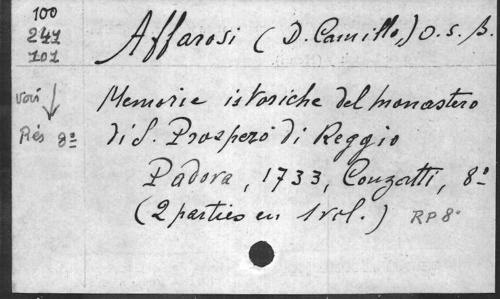 100
241
101
Affarosi (D. Camillo,) O. S. B.
Voir
Rés 8º
Memorie istoriche del monastero
di S. Prospero di Reggio
Padova, 1733, Conzatti, 8º
(2 parties en 1 vol.) RP 8º